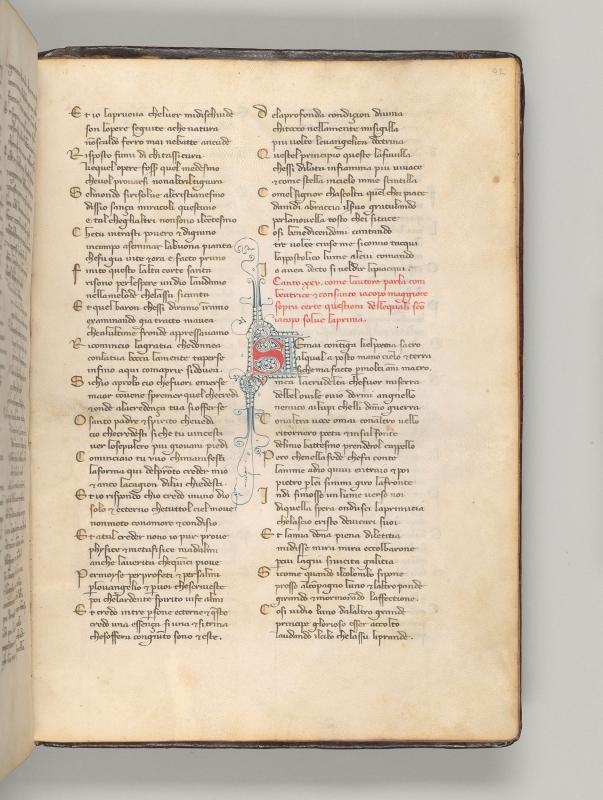 92
E t io lapruova cheluer midischiude
son lopere seguite ache natura
no scaldo ferro mai nebatte ancude
R isposto fummi di chi tassicura
che quel opere fosser quel medesmo
cheuol prouarsi non altri il tigiura
S elmondo siriuolse alcristianesmo
dissio sanza miracoli questuno
e tal chegli altri non sono il centesmo
C hetu intrasti pouero & digiuno
in campo aseminar labuona pianta
chefu gia uite & ora e facto pruno
F inito questo lalta corte santa
risono perlespere un dio laudiamo
nellamelode chelassu sicanta
E t quel baron chessi diramo in ramo
examinando gia tracto maueua
che alultime fronde appressauamo
R icomincio lagratia chedonnea
conlatua mente labocca taperse
infino aqui comaprir sidouea
S i chio aprouo cio chefuori emerse
ma or conuene spremer quel checredi
& onde alacredenza tua sofferse
O santo padre & spirito cheuedi
cio checredesti si che tu uincesti
uer losepulcro piu giouani piedi
C ominciaio tu vuo chimanifesti
laforma qui delpronto creder mio
& anco lacagion dilui chiedesti
E t io rispondo chio credo inuno dio
solo & ecterno chetuttol ciel moue
non moto conamore & condisio
E t atal creder nono io pur proue
phisice & metafisice madalmi
anche lauerita chequinci pioue
P ermoyse perprofeti & persalmi
per louangelio & peruoi chescriueste
poi chelardente spirito uise almi
E t credo in tre persone ecterne & queste
credo una essenza si una & si trina
chesofferra congiunto sono & este.
D elaprofonda condizion diuina
chitocco nellamente misigilla
piu uolte leuangelica doctrina
Q uestel principio queste lafauilla
chessi dilata infiamma poi uiuace
& come stella incielo inme scintilla
C omel signor chascolta quel chei piace
dindi abraccia ilseruo gratulando
perlanouella tosto chei sitace
C osi benedicendomi cantando
tre uolte cinse me sicomio tacqui
lappostolico lume alcui comando
I o auea decto si neldir lipiacqui.
Canto xxv. come lautore parla com
beatrice & con santo iacopo maggiore
sopra certe questioni dellequali sco
iacopo solue laprima.
S E mai contiga chelpoema sacro
alqual a posto mano cielo & terra
siche ma facto p molti anni macro.
V inca lacrudelta chefuor miserra
delbel ouile ouio dormi angnello
nemico ailupi chelli danno guerra
C onaltra uoce omai conaltro uello
ritornero poeta & insul fonte
delmio battesmo prenderol cappello
P ero chenella fede chefa conte
lanime adio quiui entraio & poi
pietro perlei simmi giro lafronte
I ndi simosse un lume uerso noi
diquella spera ondusci laprimitia
chelascio cristo deuicari suoi.
E t lamia donna piena diletitia
midisse mira mira eccol barone
per cui lagiu siuicita galitia
S icome quando ilcolombo sipone
presso alcompagno luno & laltro pande
girando & mormorando laffectione.
C osi uidio luno dalaltro grande
principe glorioso esser accolto
laudando ilcibo chelassu liprande.